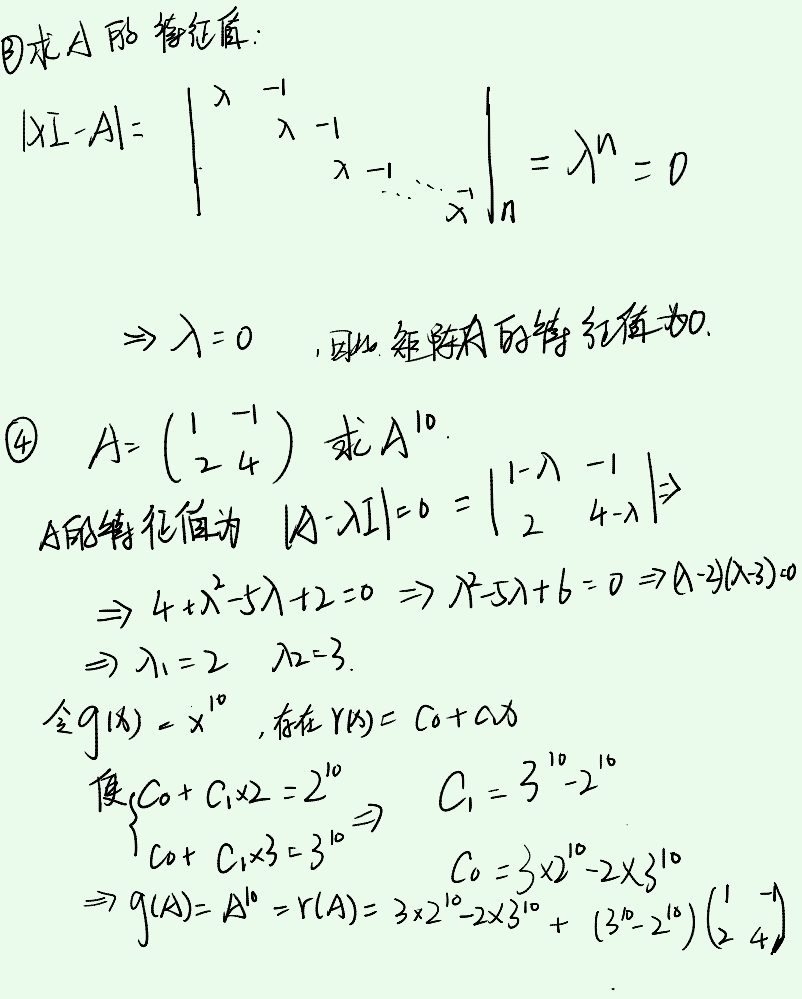 ③求A的特征值:
|λI-A|= | λ -1 λ -1 λ -1 ⋯ ⋯ -1 λ |n = λ^n = 0
⇒ λ=0 ,因此矩阵A的特征值为0.
④ A= (1 -1 2 4) 求A^10.
A的特征值为 |A-λI|=0 = |1-λ -1 2 4-λ| ⇒
⇒ 4+λ²-5λ+2=0 ⇒ λ²-5λ+6=0 ⇒ (λ-2)(λ-3)=0
⇒ λ1=2 λ2=3.
令g(x) = x^10 ,存在r(x)= C0+C1x
使{ C0+C1×2=2^10 ⇒ C1=3^10-2^10
C0+C1×3=3^10 C0=3×2^10-2×3^10
⇒ g(A)=A^10=r(A)=3×2^10-2×3^10+(3^10-2^10)(1 -1 2 4)